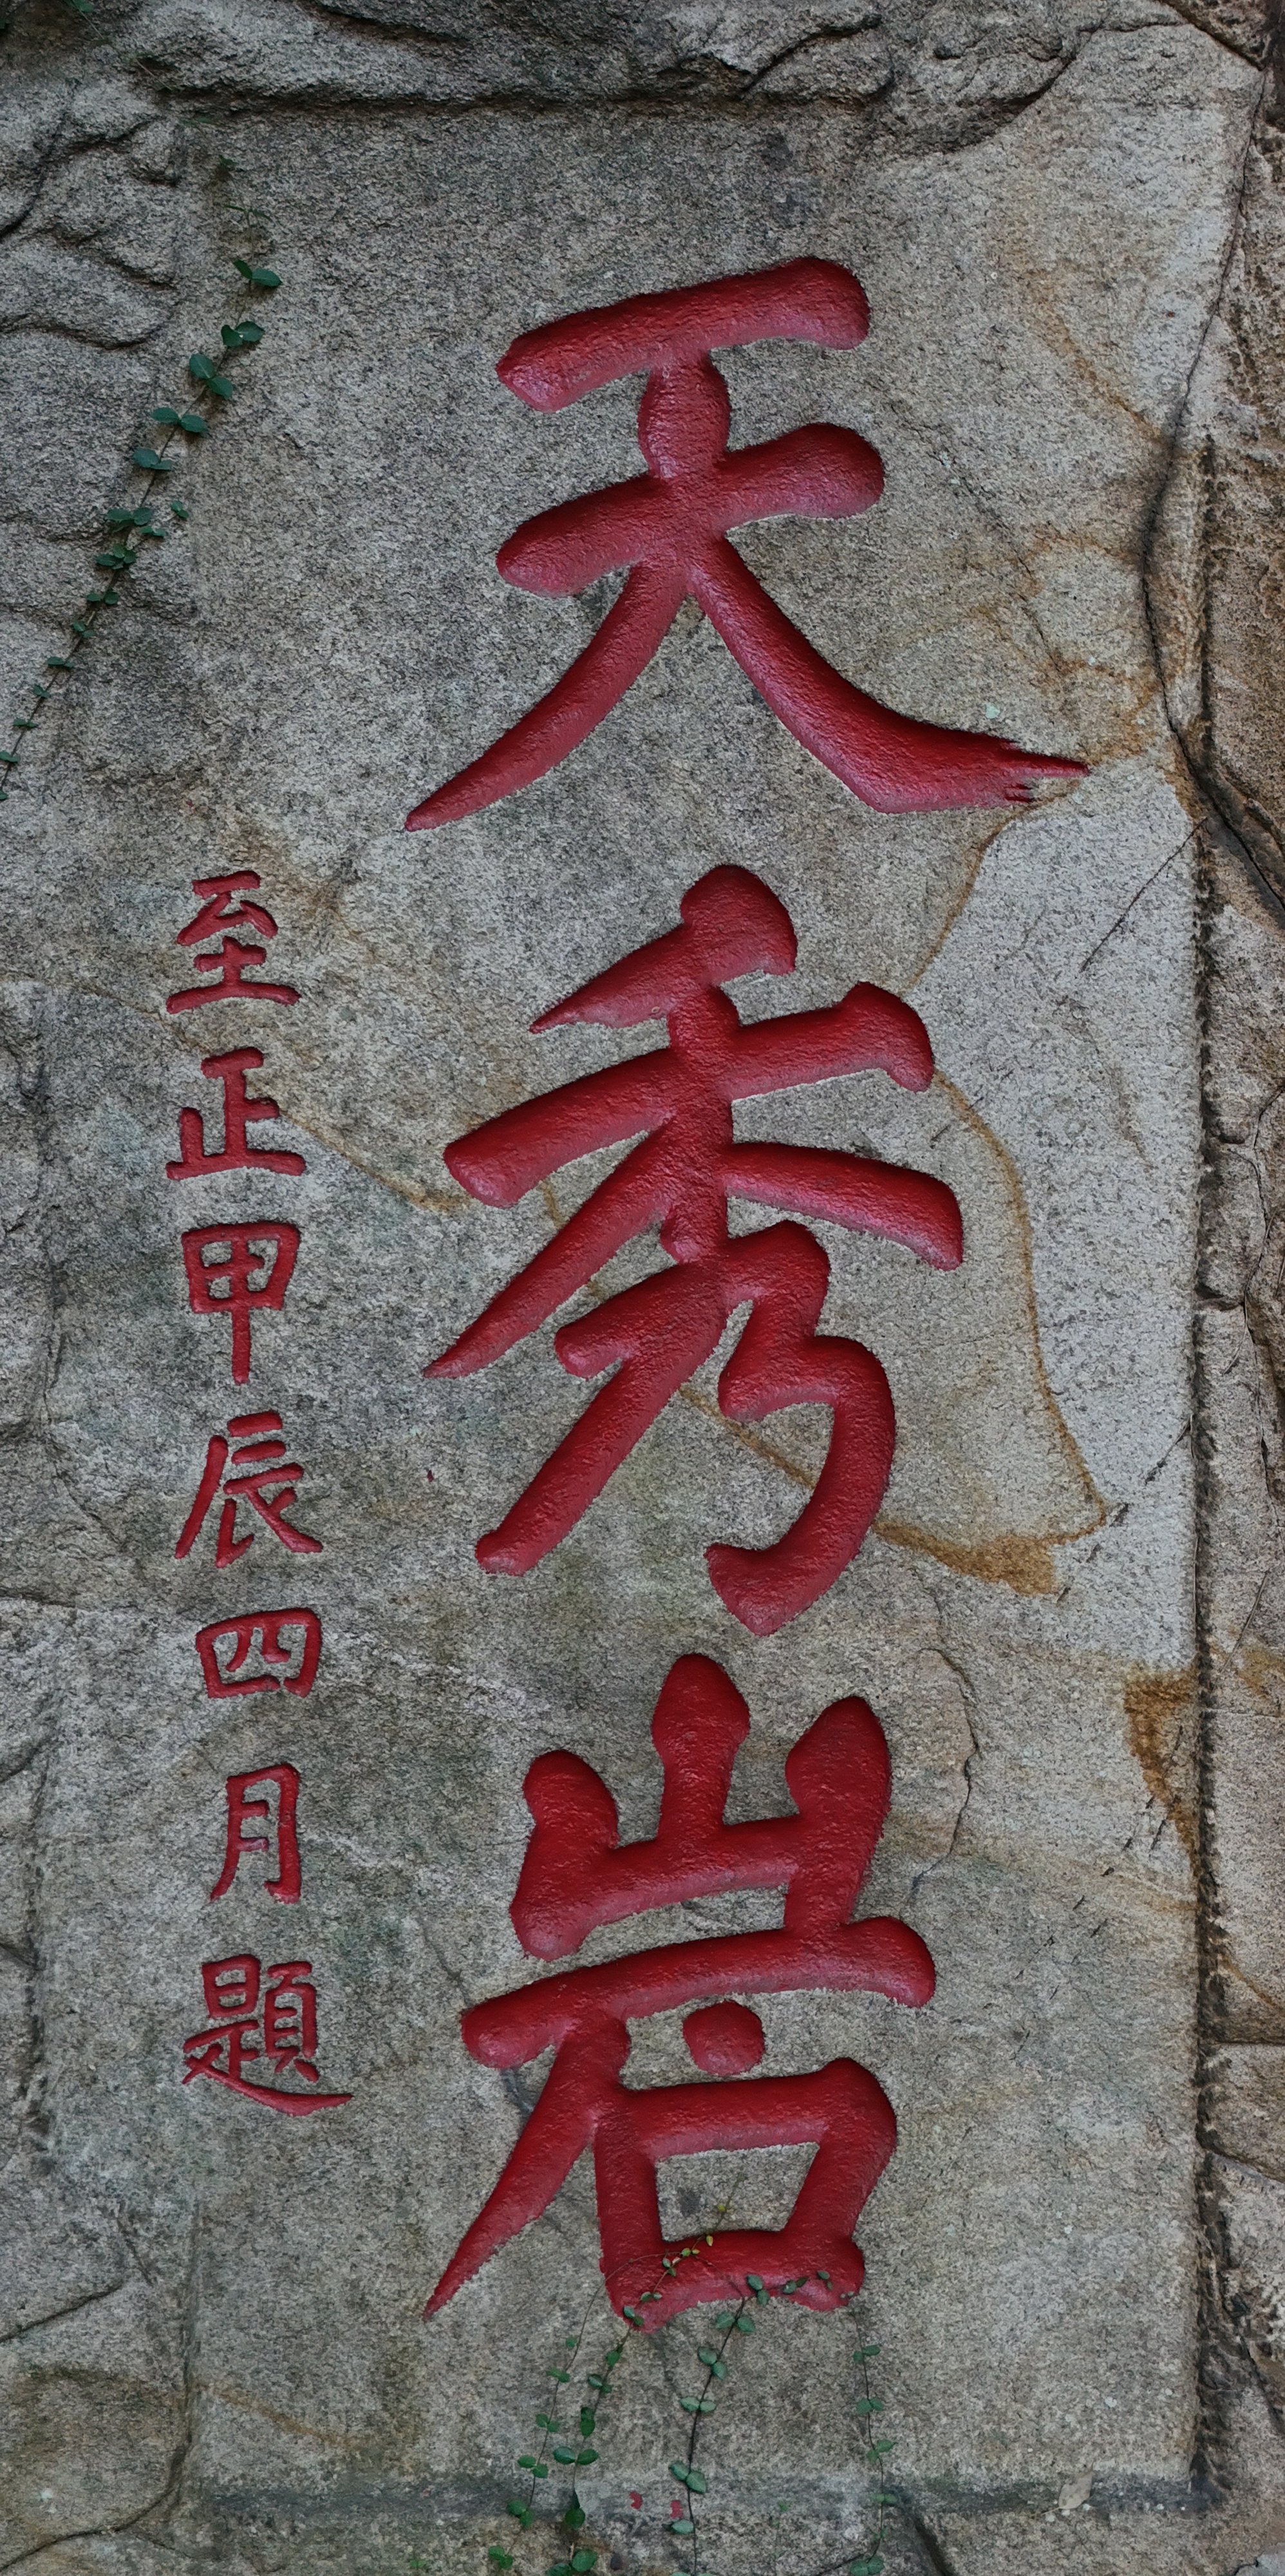 天秀岩
至正甲辰四月題